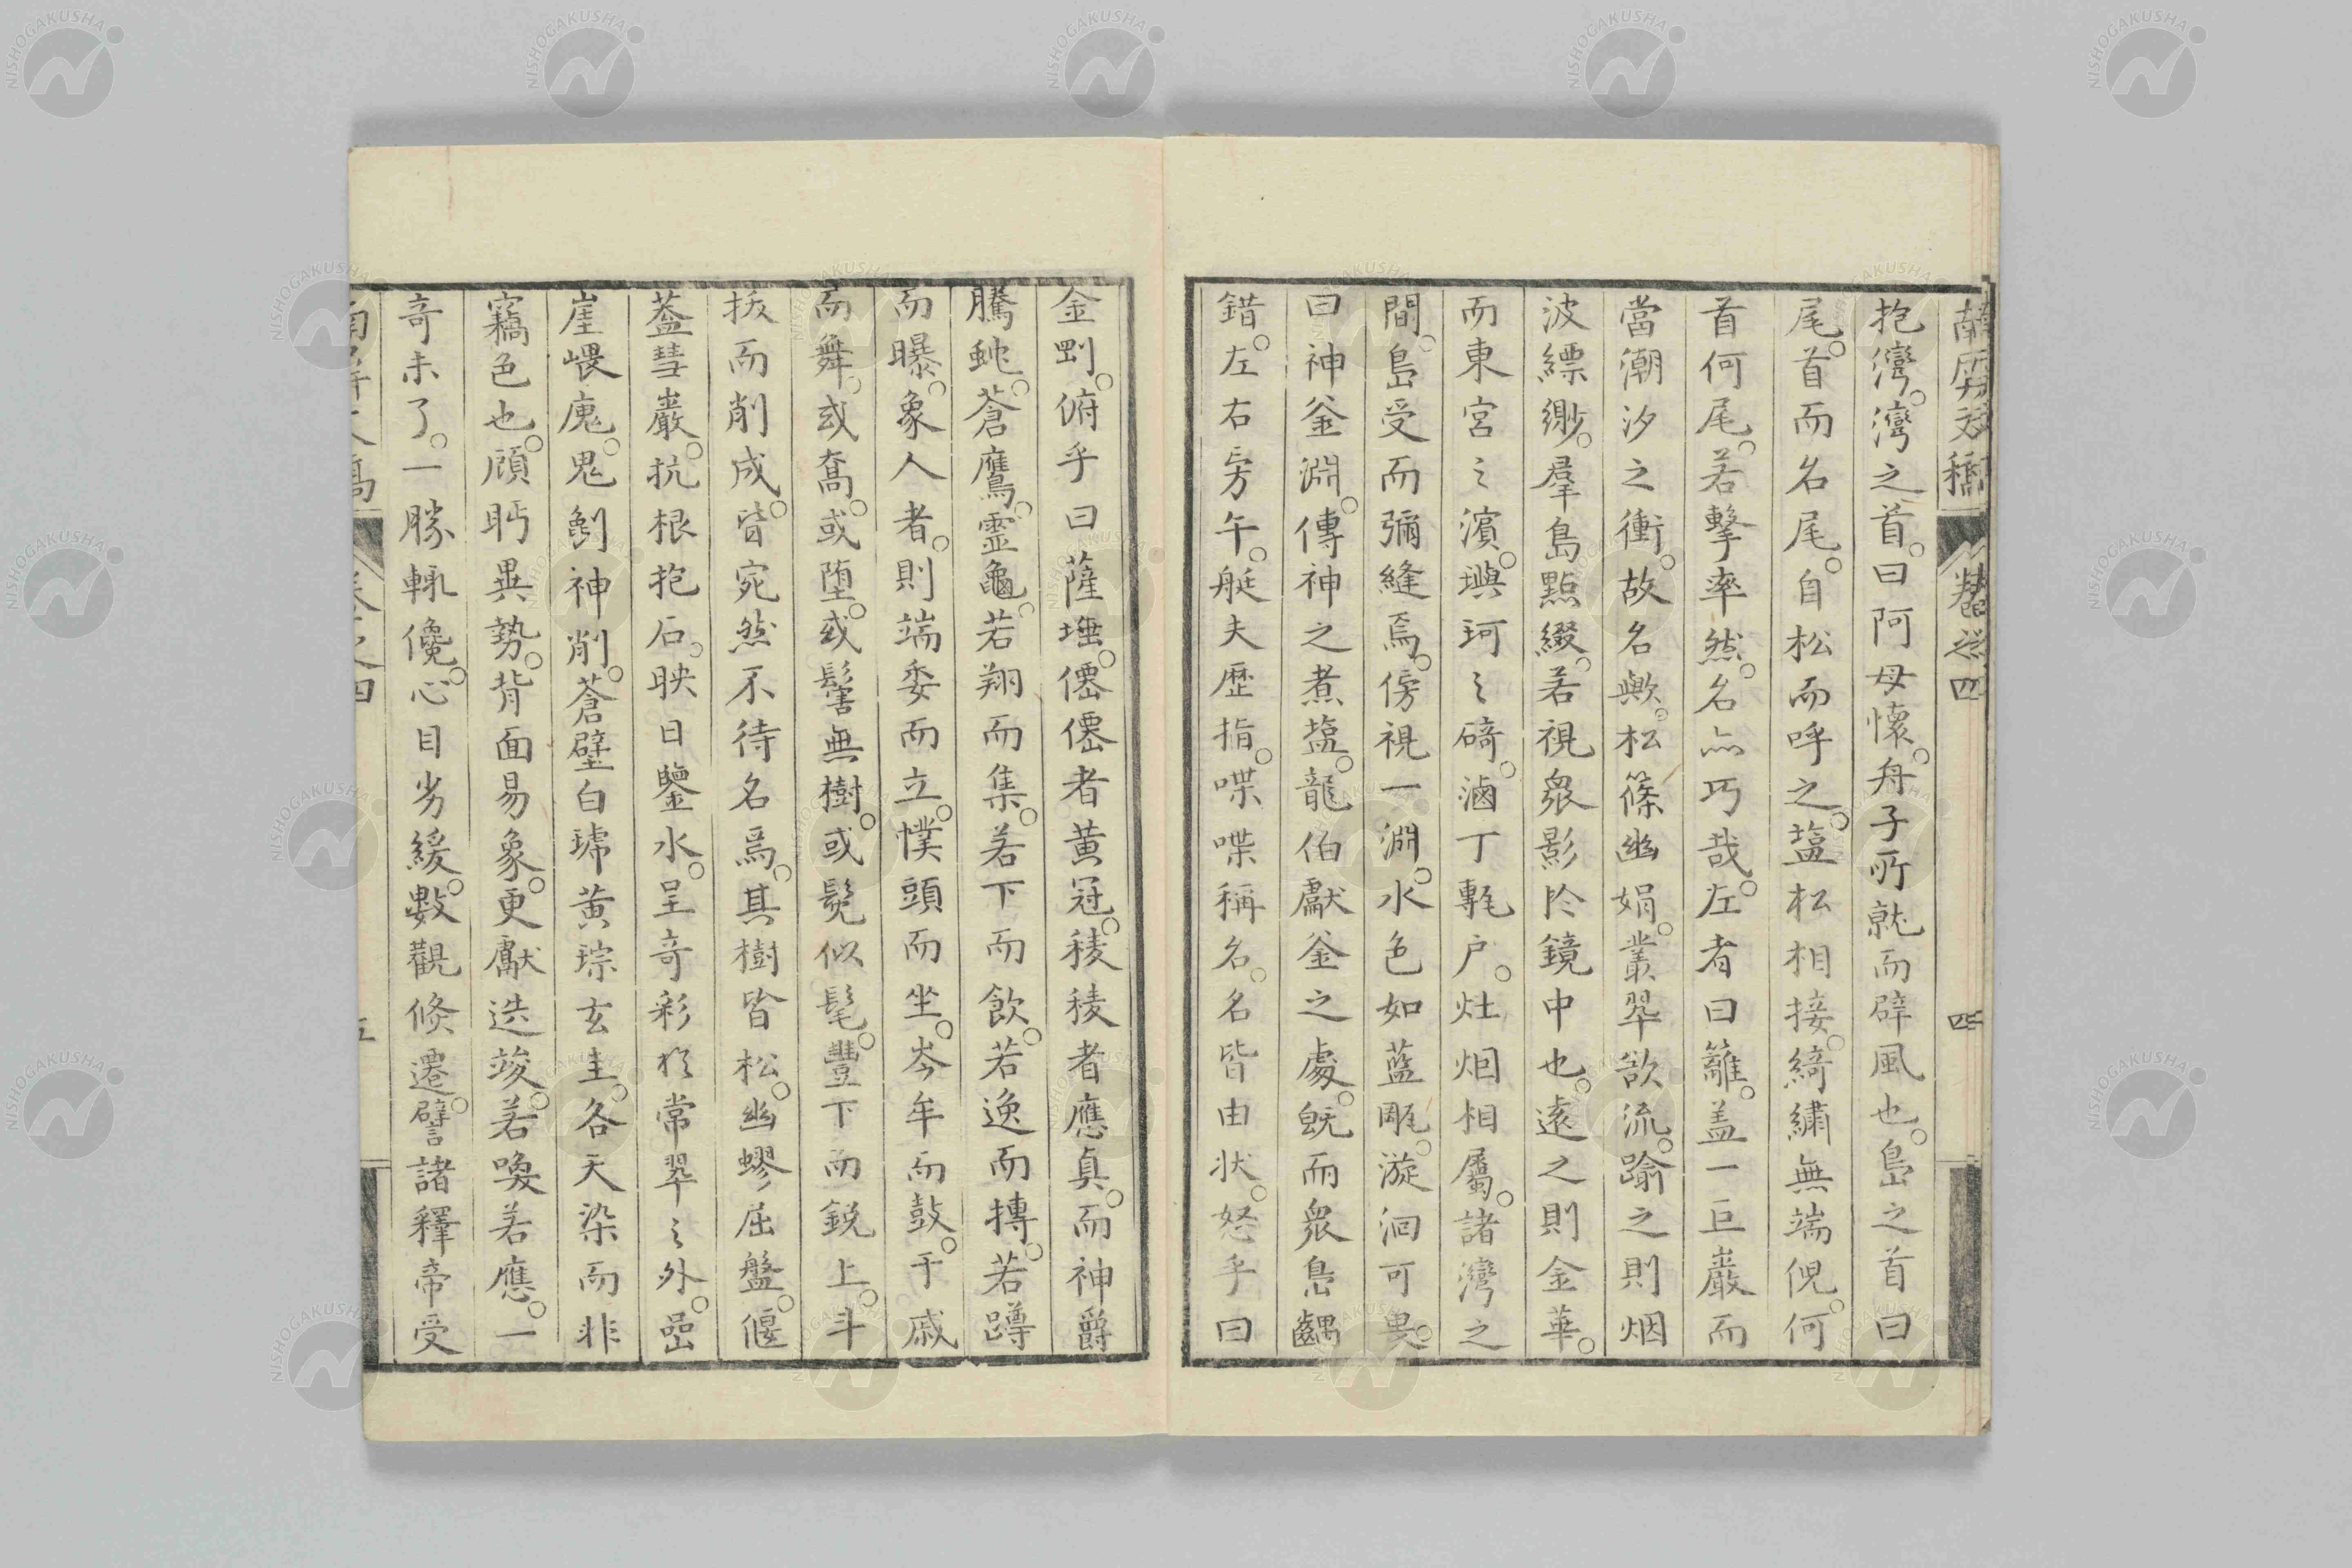 抱灣。灣之首。曰阿母懷。舟子所就而辟風也。島之首曰
尾。首而名尾。自松而呼之。塩松相接。綺繡無端倪。何
首何尾。若擊率然。名亦巧哉。左者曰籬。盖一巨巖而
當潮汐之衝。故名歟。松篠幽娟。叢翠欲流。踰之則烟
波縹緲。羣島點綴。若視衆影於鏡中也。遠之則金華。
而東宮之濱。璵珂之碕。滷丁氈户。灶烟相屬。諸灣之
間。島受而彌縫焉。傍視一淵。水色如藍靛。漩洄可畏。
曰神釜淵。傳神之煮塩。龍伯獻釜之處。既而衆島齵
錯。左右旁午。艇夫歷指。喋喋稱名。名皆由状。怒乎曰
金剛。俯乎曰薩埵。僊僊者黄冠。稜稜者應真。而神爵
騰虵。蒼鷹。靈龜。若翔而集。若下而飲。若逸而摶。若蹲
而曝。象人者。則端委而立。幞頭而坐。岑牟而鼓。于戚
而舞。或喬。或堕。或髻無樹。或髡似髦。豐下而鋭上。斗
拔而削成。皆宛然不待名焉。其樹皆松。幽蟉屈盤。偃
葢彗巖。抗根抱石。映日鑒水。呈奇彩於常翠之外。嵒
崖崾廆。鬼劊神削。蒼璧白琥黄琮玄圭。各天染而非
竊色也。頋眄異勢。背面易象。更獻迭竣。若喚若應。一
奇未了。一勝輙儳。心目劣緩。數觀倏遷。譬諸釋帝受
南屏文稿
卷之四
四
五